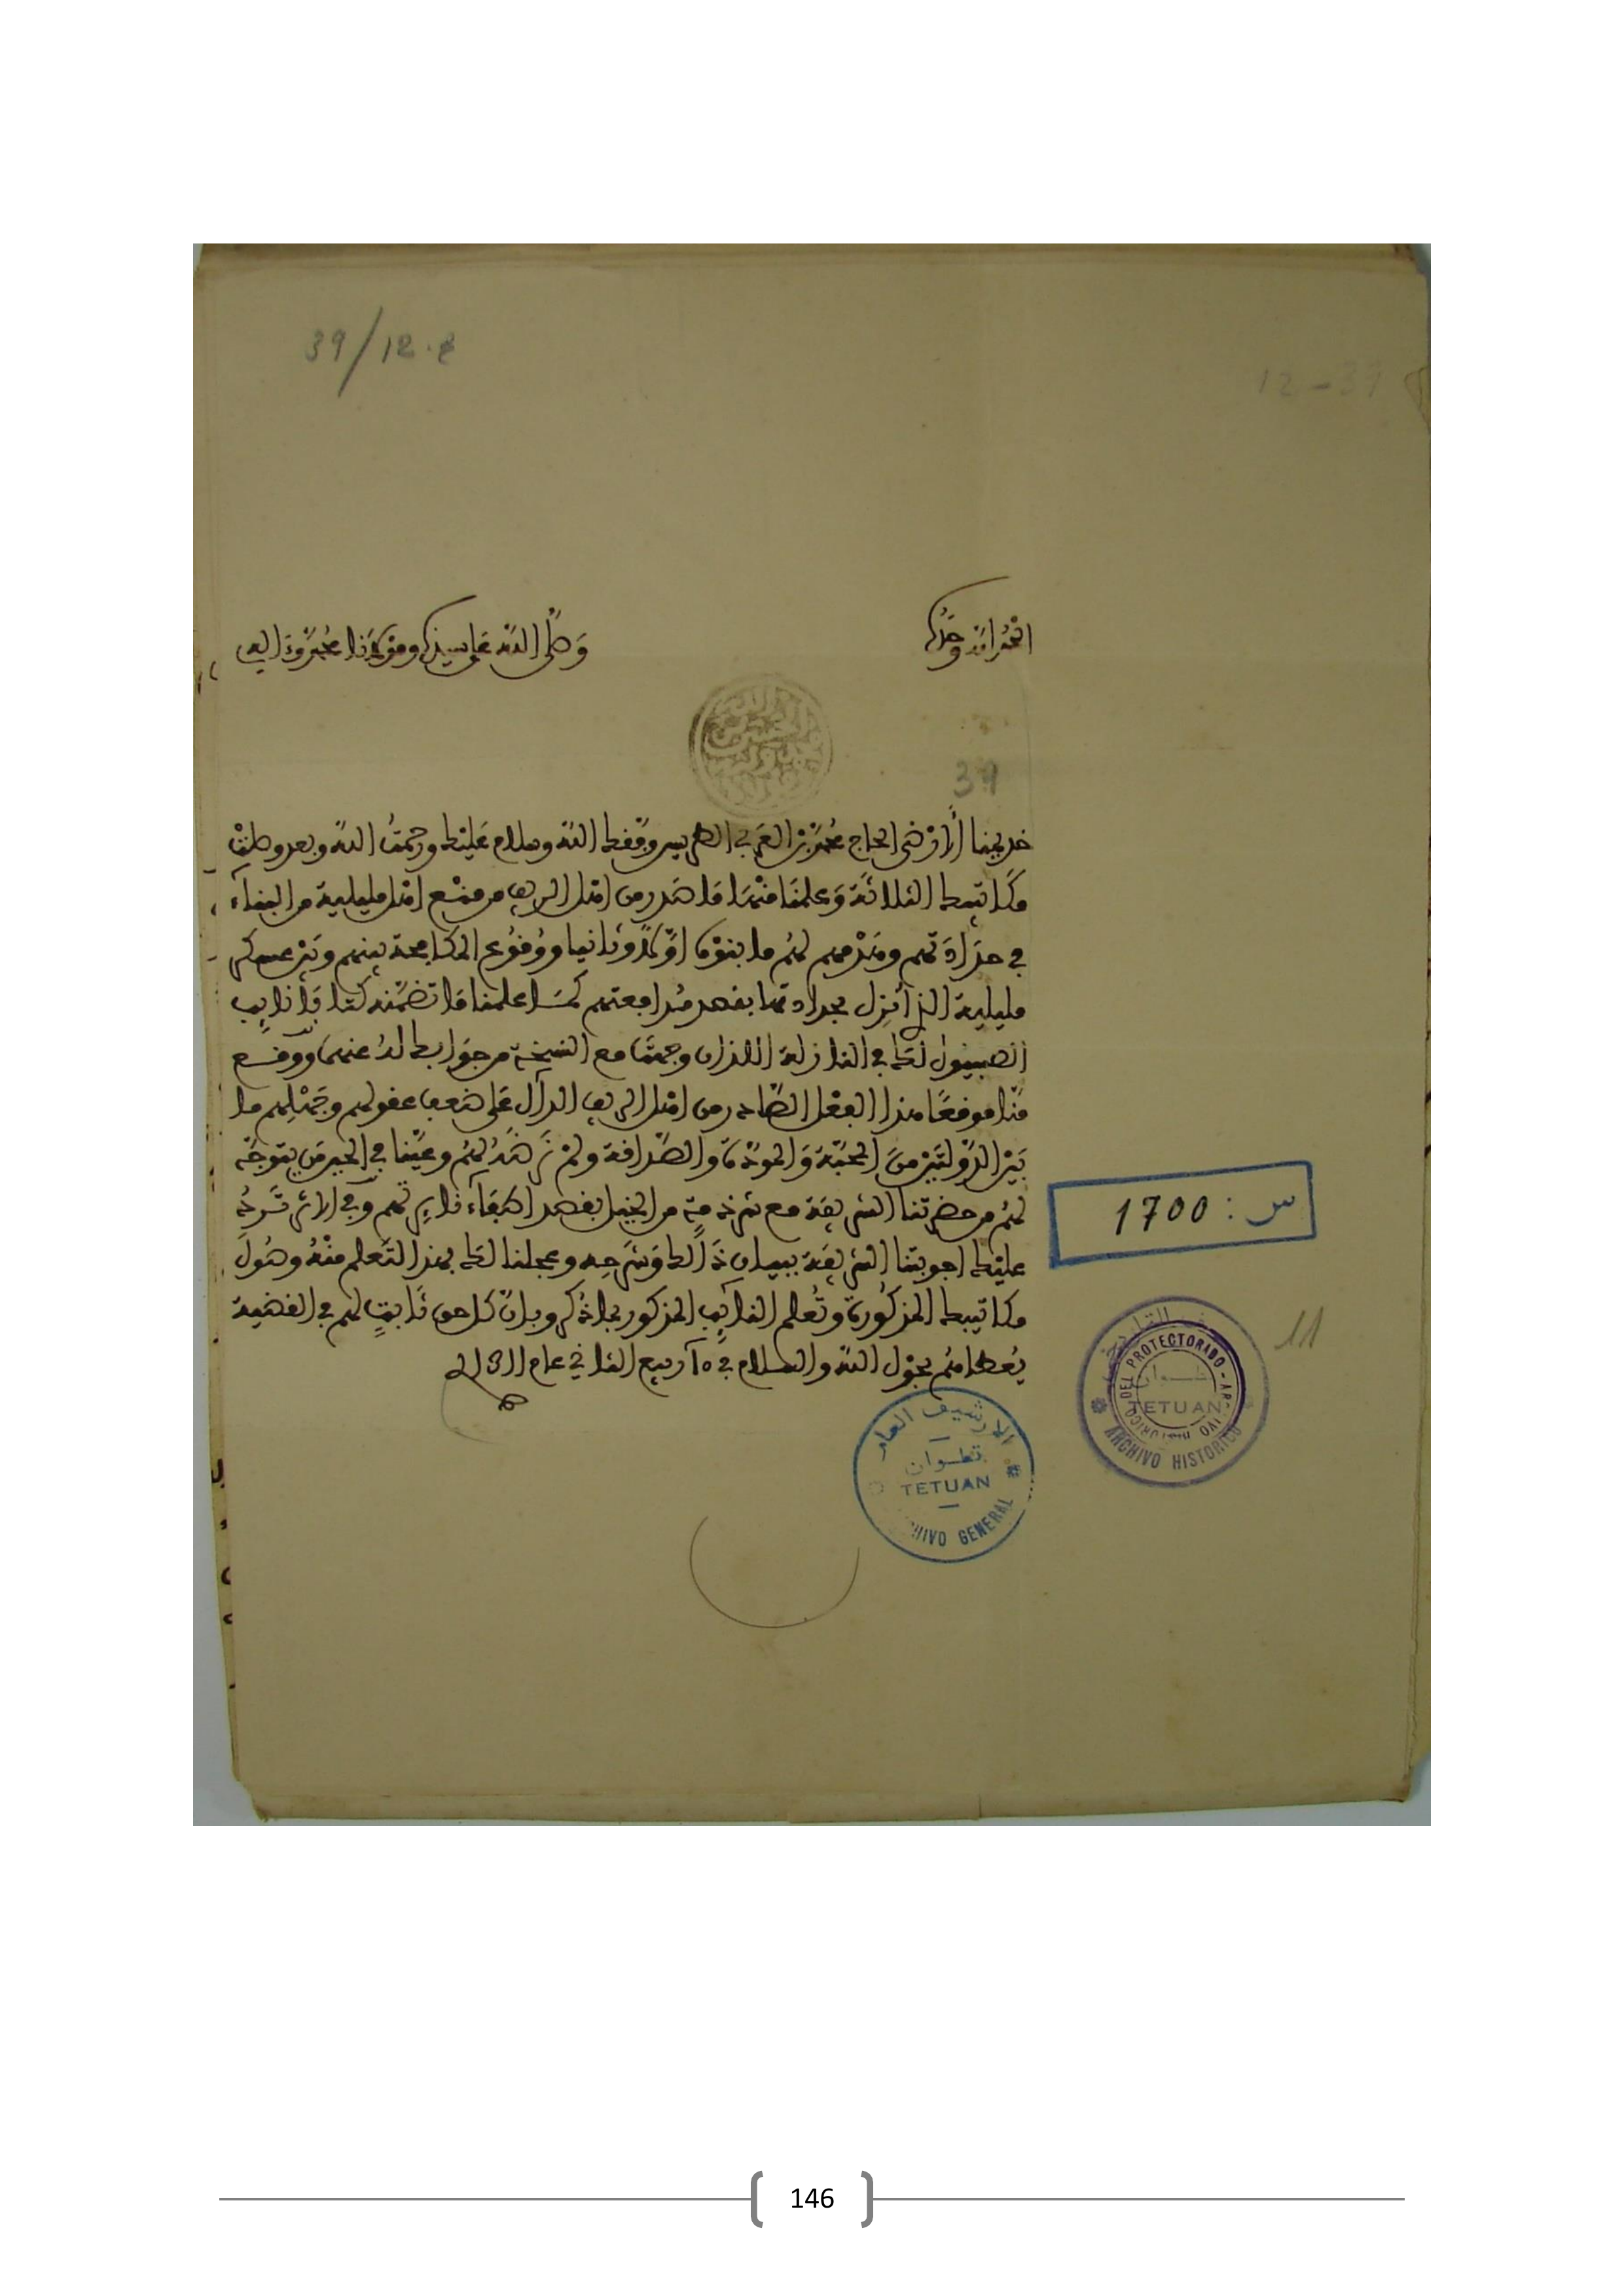 39/12.
12-39
الحمد لله وحده
وصلى الله على سيدنا ومولانا محمد وءاله
39
خديمنا الارضى الحاج محمد بن العربي الطريس وفقك الله وسلام عليك ورحمت الله وبعد وصلت
مكاتبك الثلاثة وعلمنا منها ما صدر من اهل الريف من منع اهل مليلية من البناء
في حدادتهم وهدمهم لهم ما بنوه اولا وثانيا ووقوع المكافحة بينهم وبين عسكر
مليلية الذي نزل بحدادتها بقصد مدافعتهم كما علمنا ما تضمنه كتابا نايب
الصبنيول لك في النازلة اللذان وجهتها مع النسخة من جوابك له عنهما ووقع
منا موقعا هذا الفعل الصادر من اهل الريف الدال على ضعف عقولهم وجهلهم ما
بين الدولتين من المحبة والمودة والصداقة ولم نرضه لهم وعينا في الحين من يتوجه
لهم من حضرتنا الشريفة مع شرذمة من الخيل بقصد اطفاء نايرتهم وفي الاثر ترد
عليك اجوبتنا الشريفة ببيان ذلك وشرحه وعجلنا لك بهذا لتعلم منه وصول
مكاتيبك المذكورة وتعلم النائب المذكور بما ذكر وبان كل حق ثابت لهم في القضية
يعطاهم بحول الله والسلام في 15 ربيع الثاني عام 1311
س : 1700
11
DEL PROTECTORADO
تطوان
TETUAN
ARCHIVO HISTORICO
الارشيف العام
تطوان
TETUAN
ARCHIVO GENERAL
146